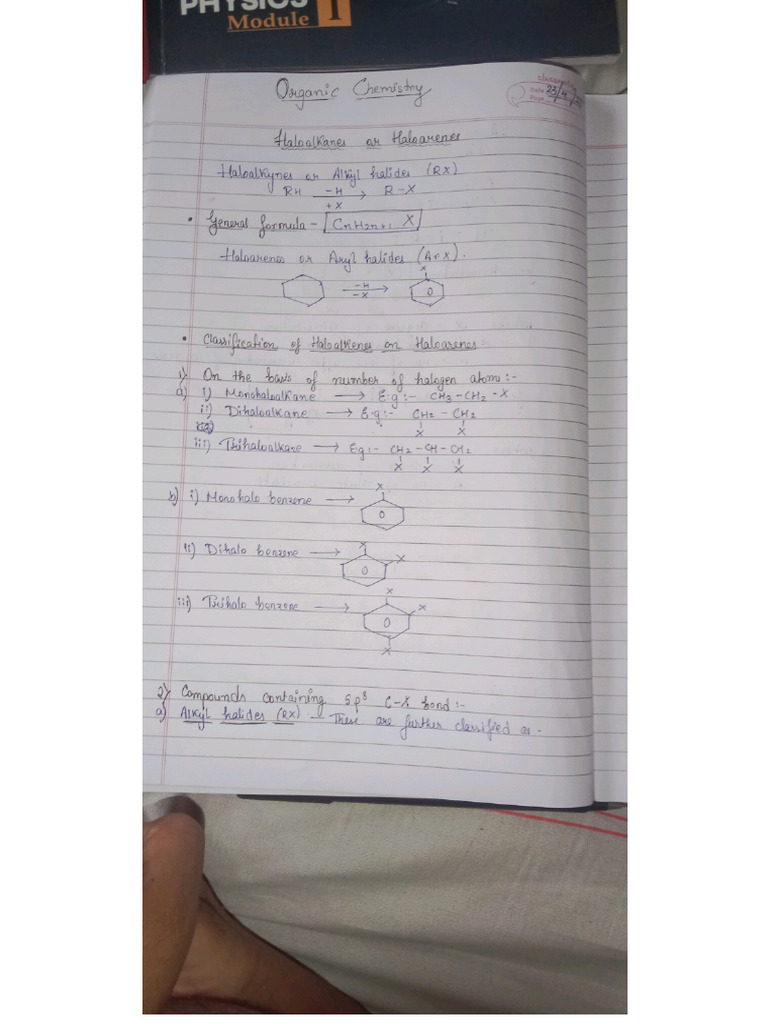 PHYSICS
Module 1
Organic Chemistry
CLASSMATE
Date 23/4/
Page
Haloalkanes or Haloarenes
Haloalkynes or Alkyl halides (RX)
RH —H→ R-X
+X
• General formula - CnH2n+1 X
Haloarenes or Aryl halides (ArX).
X
-H
-X
• Classification of Haloalkenes on Haloarenes
1) On the basis of number of halogen atoms:-
a) i) Monohaloalkane → E.g:- CH3-CH2-X
ii) Dihaloalkane → E.g:- CH2 - CH2
X X
iii) Trihaloalkane → Eg:- CH2 -CH- CH2
X X X
b) i) Monohalo benzene →
X
ii) Dihalo benzene →
X X
iii) Trihalo benzene →
X X
X
2) Compounds containing sp3 C-X bond:-
a) Alkyl halides (RX) - These are further classified as -